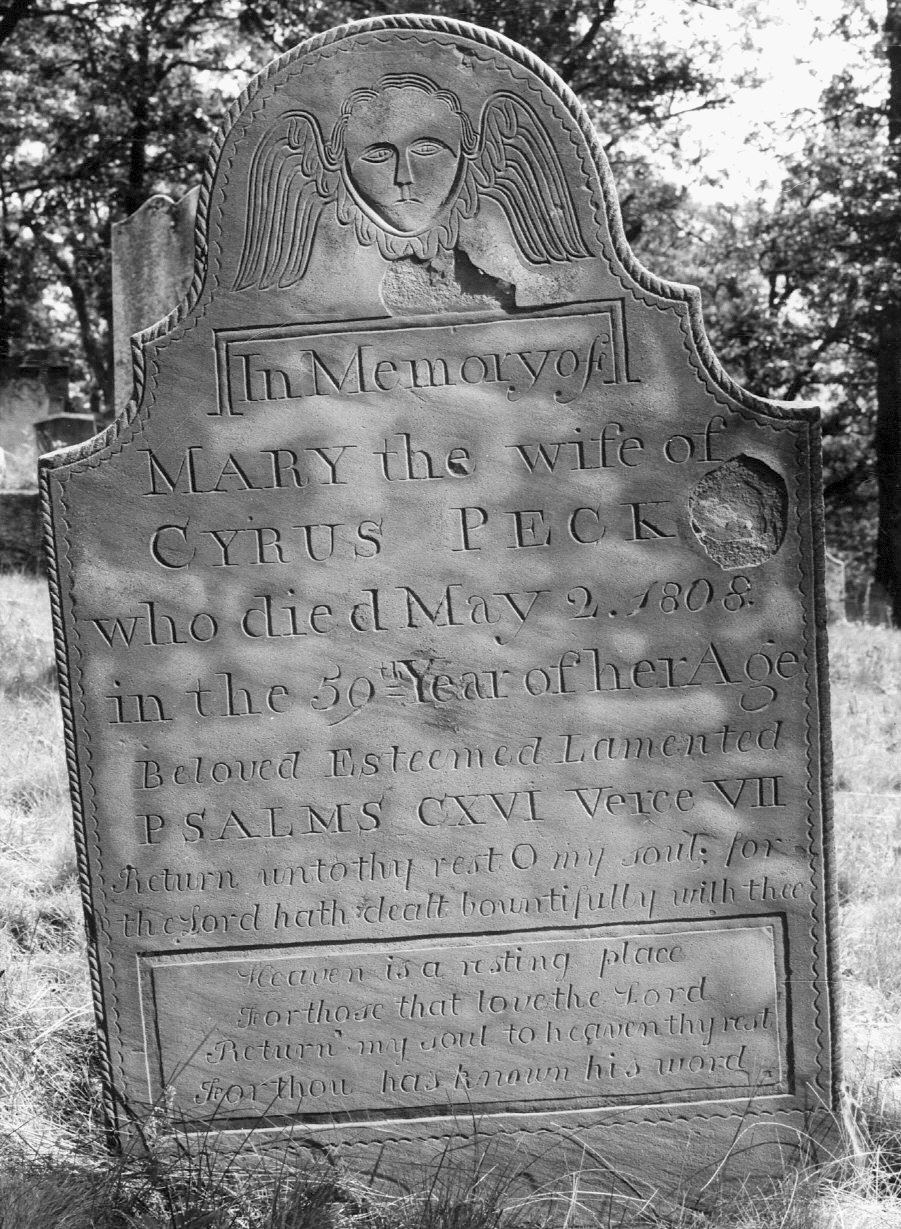 In Memory of
MARY the wife of
CYRUS PECK
who died May 2. 1808.
in the 59th Year of her Age
Beloved Esteemed Lamented
PSALMS CXVI Verce VII
Return unto thy rest O my soul; for
the Lord hath dealt bountifully with thee
Heaven is a resting place
For those that love the Lord
Return my soul to heaven thy rest
For thou has known his word